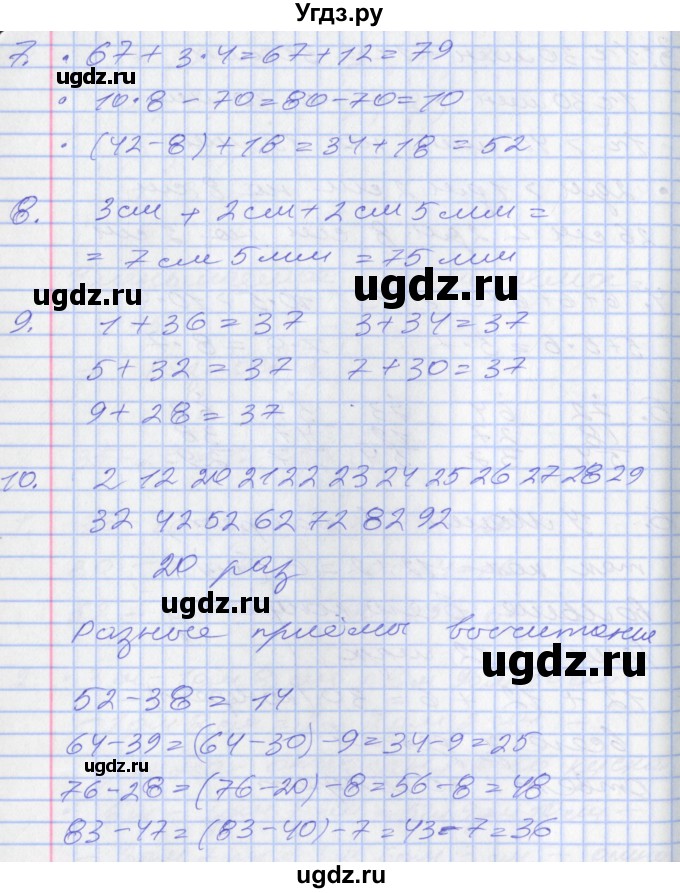 Угдз.ру
7. · 67 + 3 · 4 = 67 + 12 = 79
ugdz.ru
· 10 · 8 - 70 = 80 - 70 = 10
· (42 - 8) + 18 = 34 + 18 = 52
8. 3 см + 2 см + 2 см 5 мм =
= 7 см 5 мм = 75 мм
ugdz.ru ugdz.ru
9. 1 + 36 = 37 3 + 34 = 37
5 + 32 = 37 7 + 30 = 37
9 + 28 = 37
10. 2 12 20 21 22 23 24 25 26 27 28 29
32 42 52 62 72 82 92
20 раз
ugdz.ru
Разные приёмы вычитания
ugdz.ru
52 - 38 = 14
64 - 39 = (64 - 30) - 9 = 34 - 9 = 25
ugdz.ru
76 - 28 = (76 - 20) - 8 = 56 - 8 = 48
83 - 47 = (83 - 40) - 7 = 43 - 7 = 36
ugdz.ru